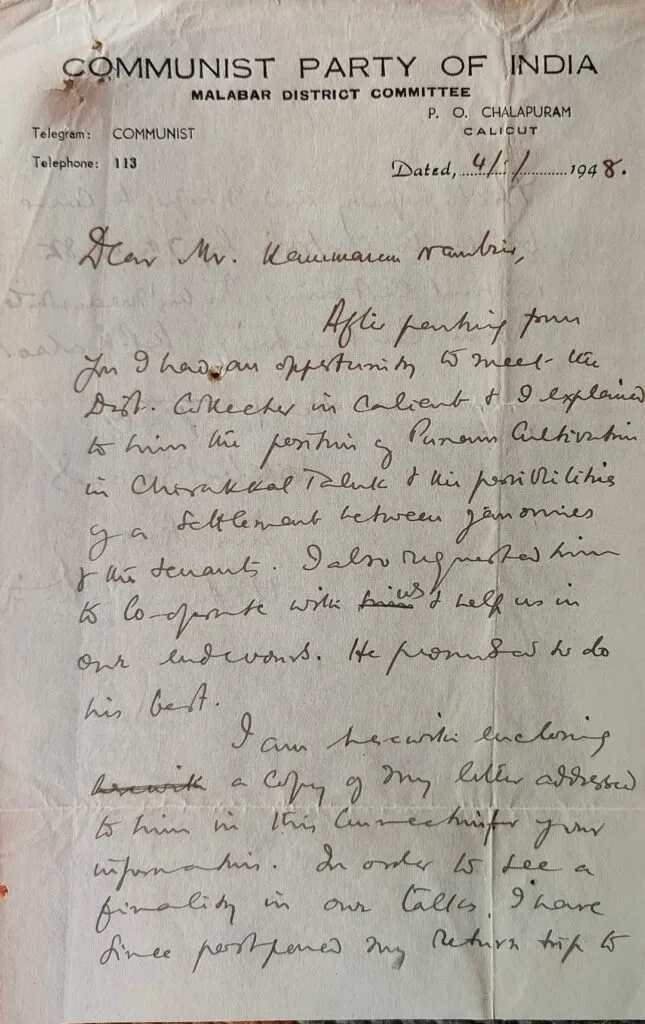 COMMUNIST PARTY OF INDIA
MALABAR DISTRICT COMMITTEE
P. O. CHALAPURAM
CALICUT
Telegram: COMMUNIST
Telephone: 113
Dated, 4/1/1948.
Dear Mr. Kammaran Nambiar,
After parting from
you I had an opportunity to meet the
Dist. Collector in Calicut & I explained
to him the position of Punam Cultivation
in Chirakkal Taluk & the possibilities
of a settlement between janmies
& the tenants. I also requested him
to Co-operate with him us & help us in
our endevours. He promised to do
his best.
I am herewith enclosing
herewith a copy of my letter addressed
to him in this connection for your
information. In order to see a
finality in our talks, I have
since postponed my return trip to